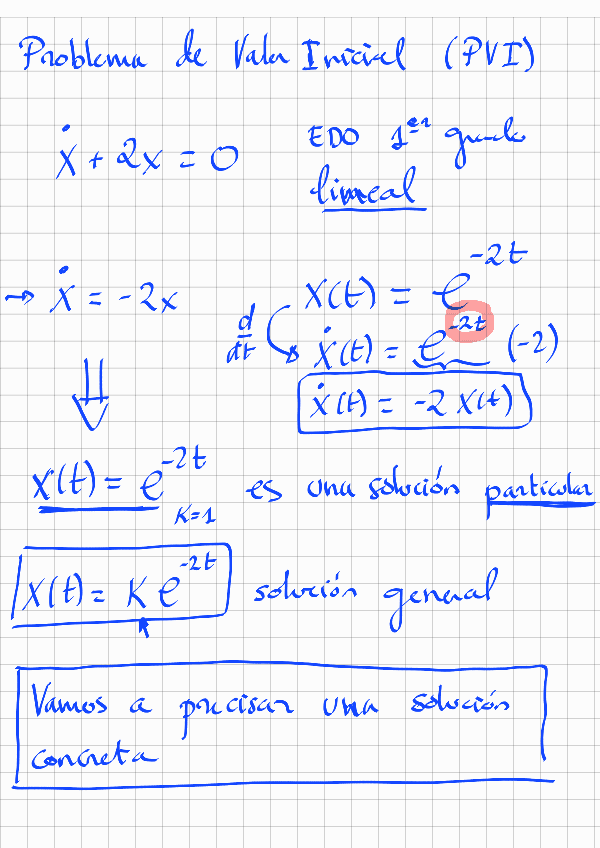 Problema de Valor Inicial (PVI)
ẋ + 2x = 0
EDO 1er grado
lineal
→ ẋ = -2x
x(t) = e^{-2t}
d/dt
ẋ(t) = e^{-2t} (-2)
ẋ(t) = -2 x(t)
⇓
x(t) = e^{-2t} es una solución particular
K=1
x(t) = K e^{-2t} solución general
Vamos a precisar una solución
concreta